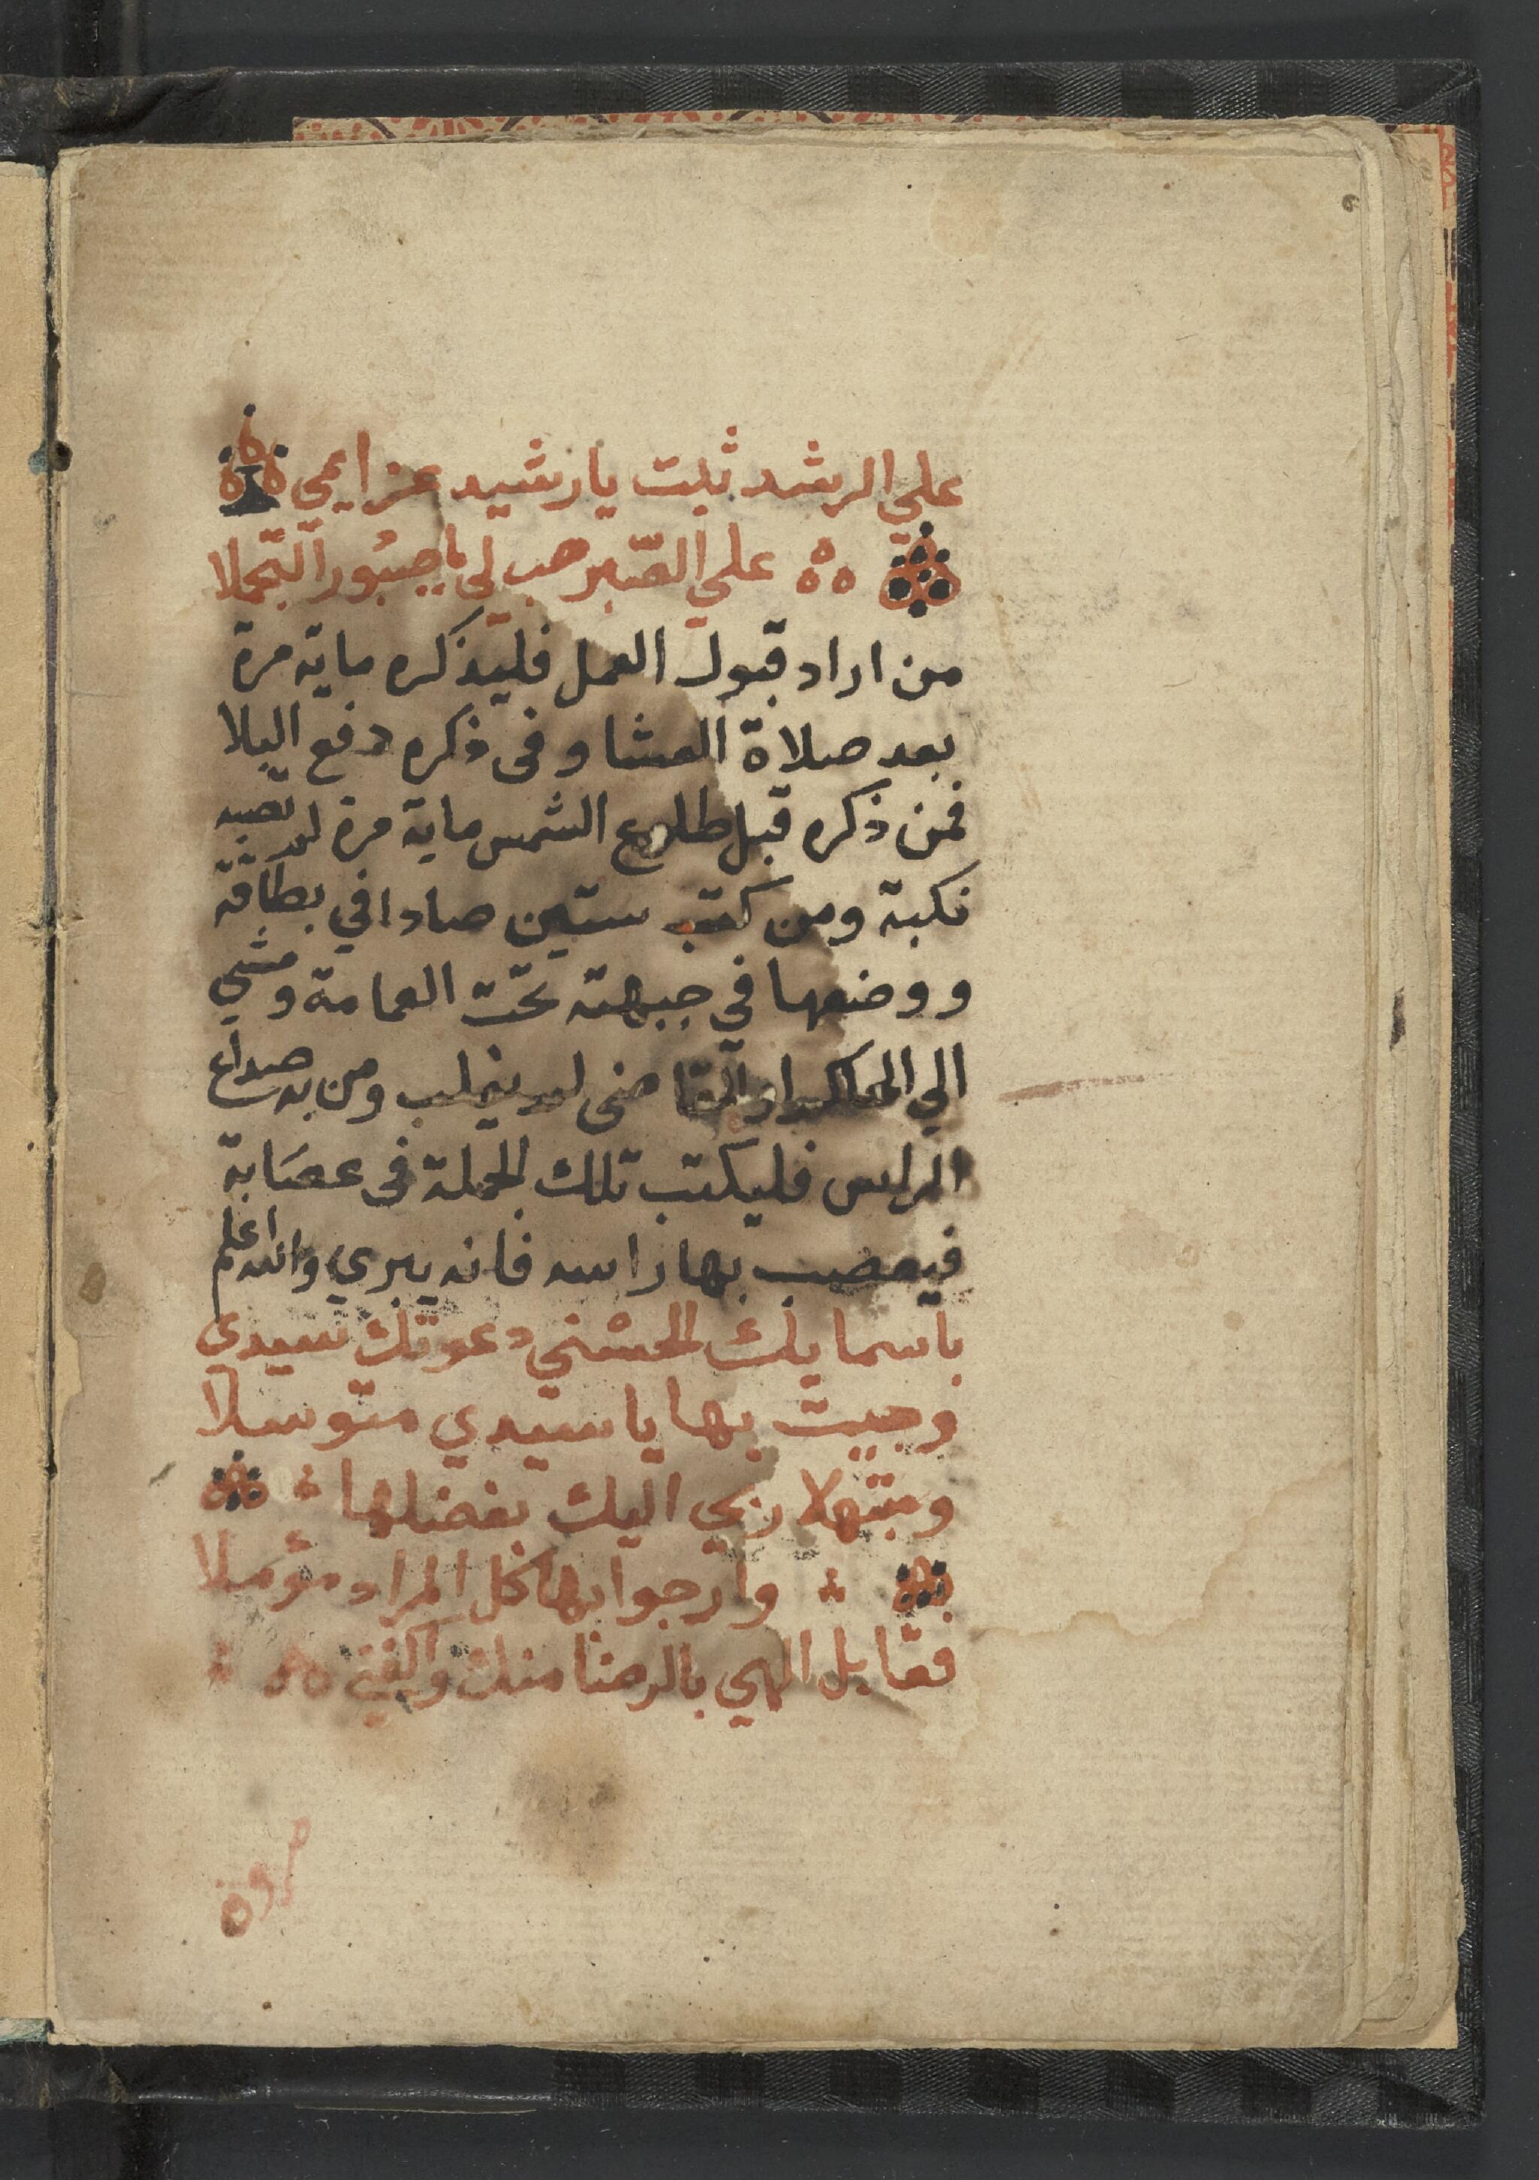 علي الرشد ثبت يا رشيد عزايمي
علي الصّبر هب لي يا صبُور التجملا
من اراد قبول العمل فليذكره ماية مرة
بعد صلاة العشا وفى ذكره دفع البلا
فمن ذكره قبل طلوع الشمس ماية مرة لم تصبه
نكبة ومن كتب ستين صادا في بطاقة
ووضعها في جبهته تحت العمامة ومشي
الي الحاكم او القاضى لم يغلب ومن به صداع
الراس فليكتب تلك الجملة فى عصَابة
فيعصب بها راسه فانه يبري والله اعلم
باسمايك الحسْني دعوتك سيدي
وجيت بها يا سيدي متوسلا
ومبتهلا ربي اليك بفضلها
وارجوا بها كل المراد مؤملا
فقابل الهي بالرضا منك واكفني